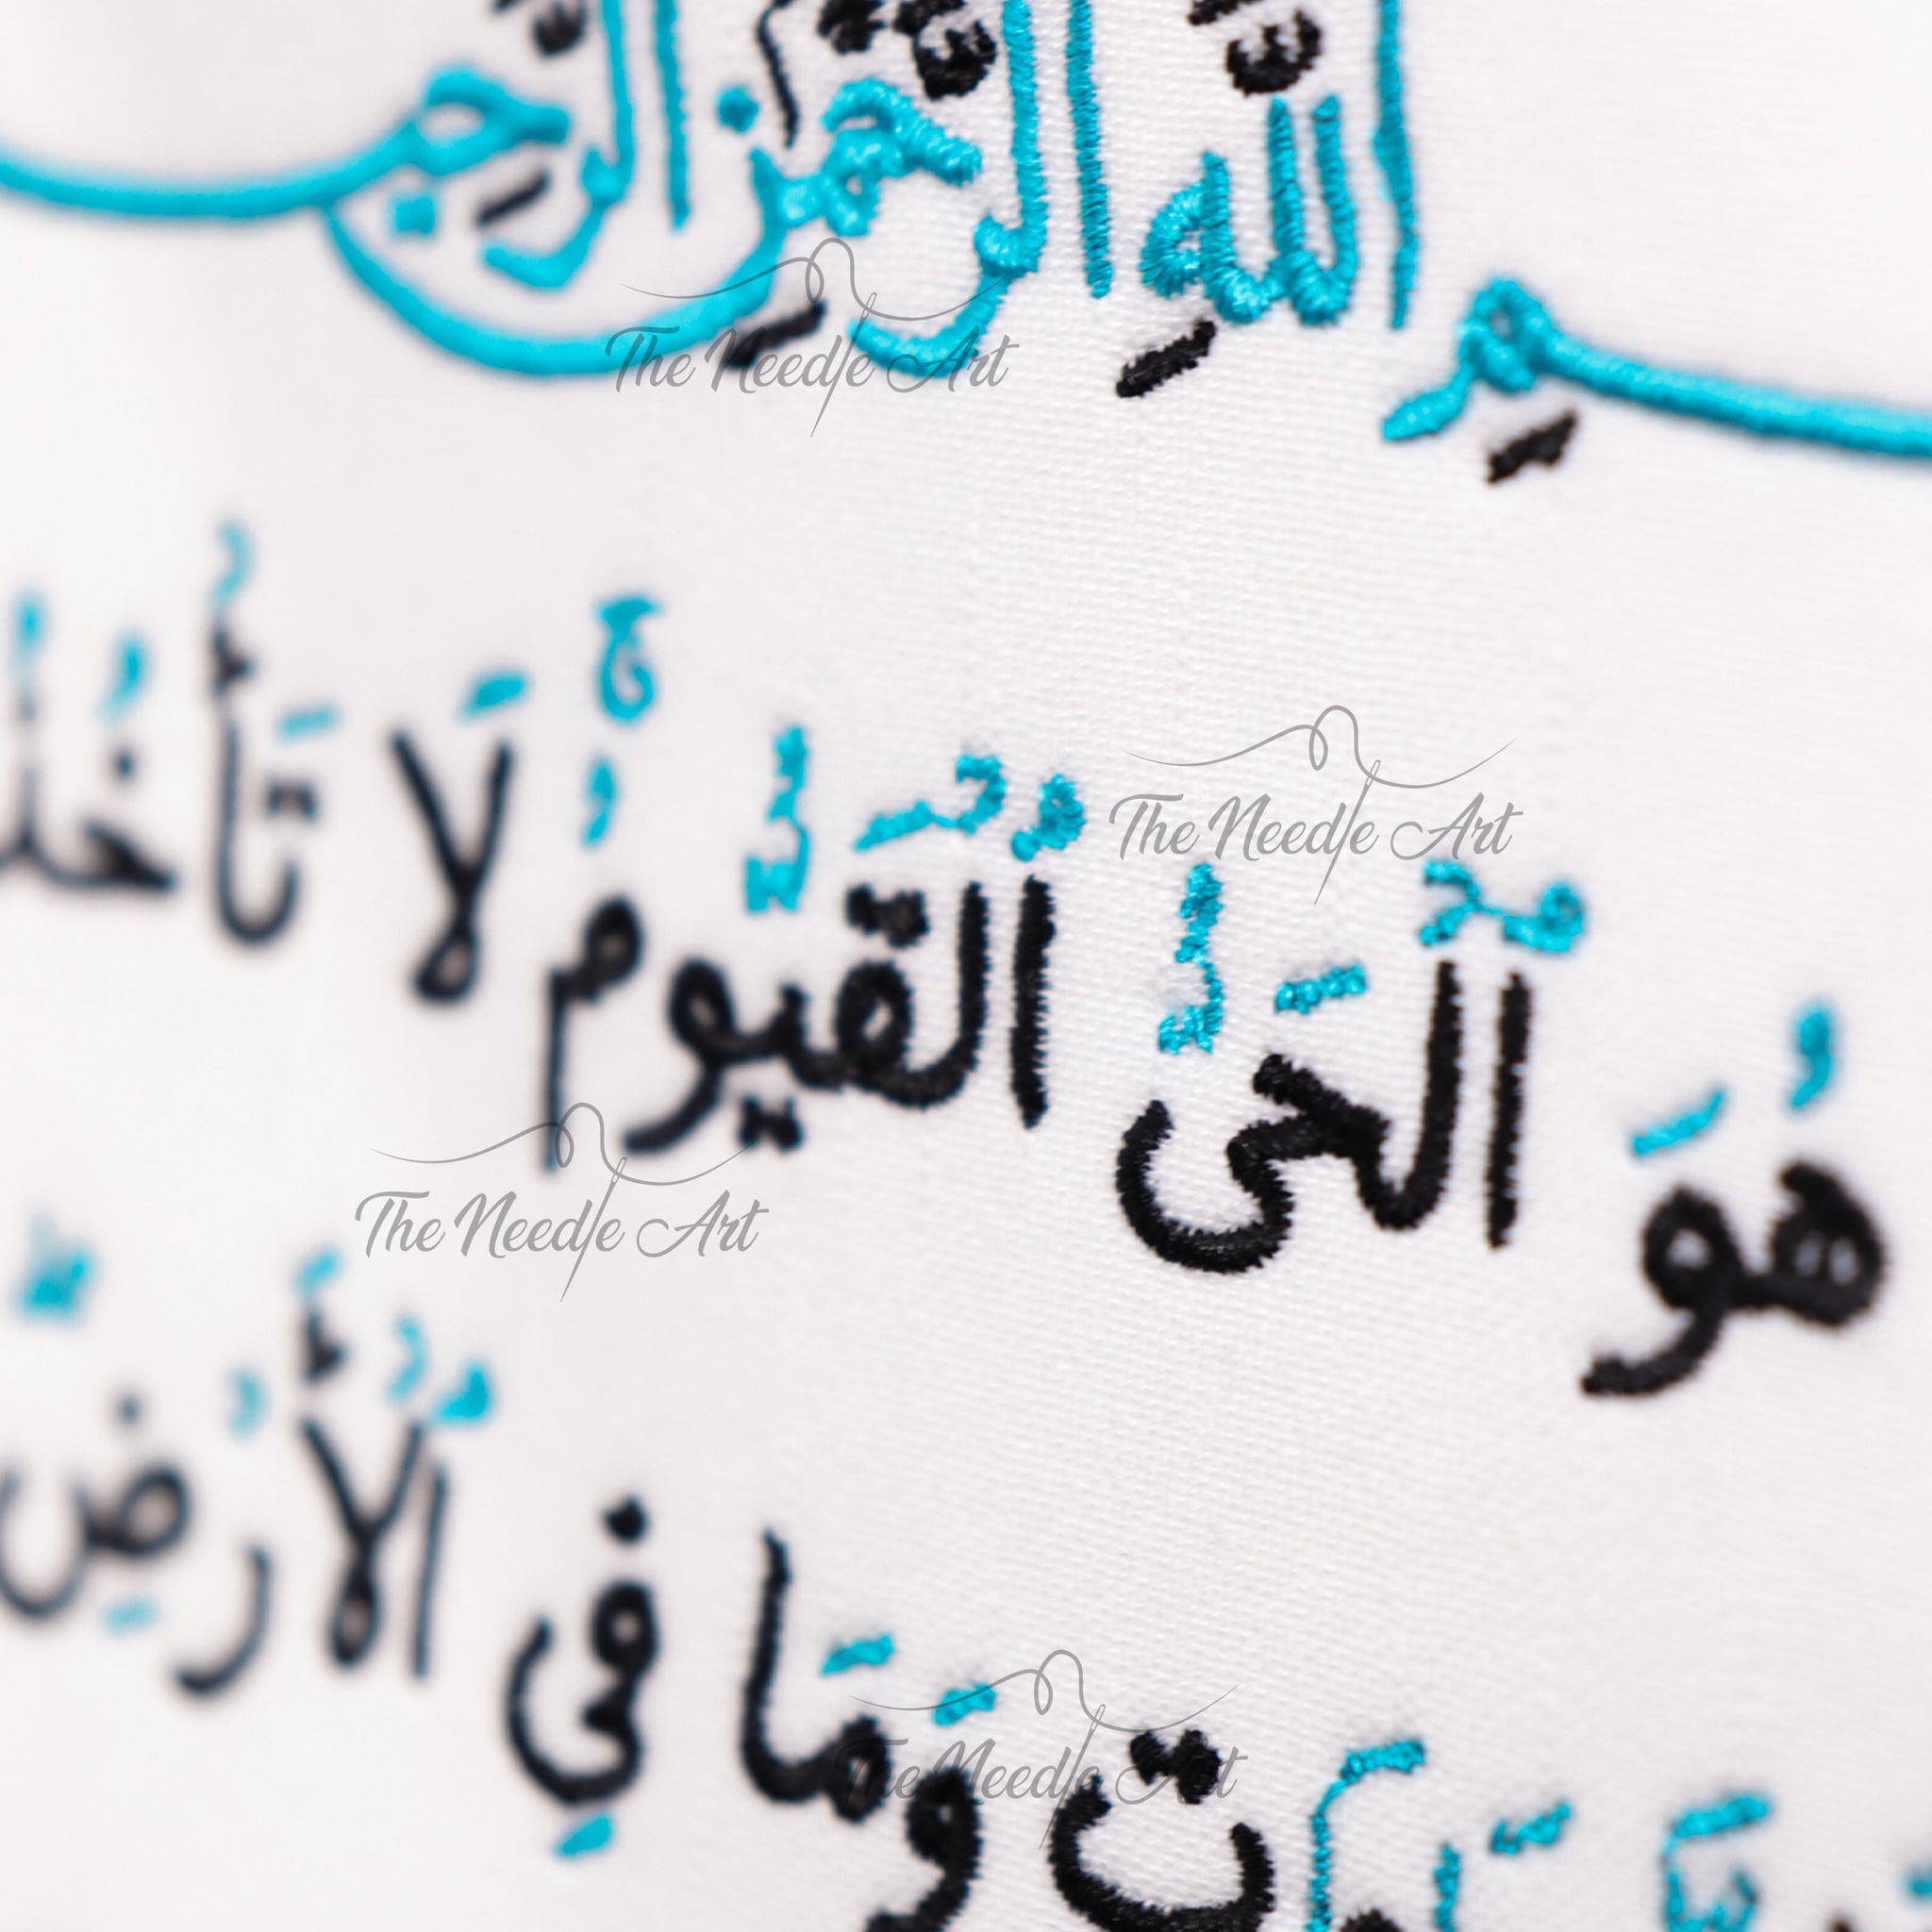 بسمِ اللهِ الرَّحمٰنِ الرَّحِيـ
هُوَ ٱلْحَىُّ ٱلْقَيُّومُ ۚ لَا تَأْخُذُ
ـٰتِ وَمَا فِي ٱلْأَرْضِ
The Needle Art
The Needle Art
The Needle Art
The Needle Art